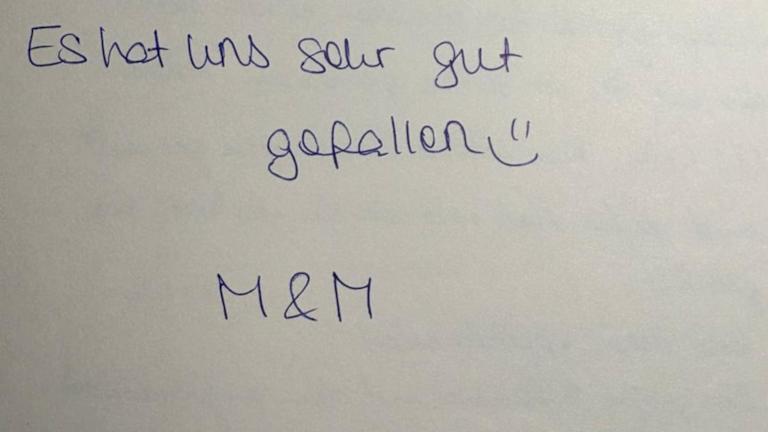 Es hat uns sehr gut
gefallen ü
M & M